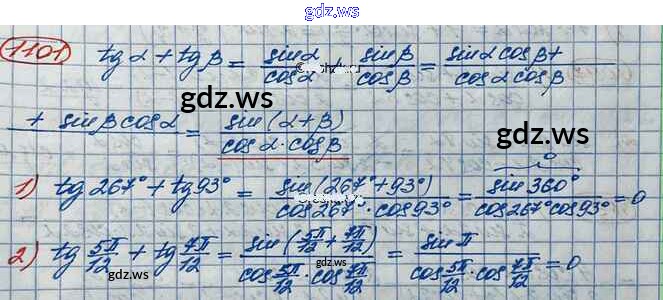 gdz.ws
1101 tg α + tg β = sin α / cos α + sin β / cos β = sin α cos β + / cos α cos β
gdz.ws gdz.ws
+ sin β cos α = sin (α + β) / cos α · cos β
1) tg 267° + tg 93° = sin (267° + 93°) / cos 267° · cos 93° = sin 360° (0) / cos 267° cos 93° = 0
2) tg 5π/12 + tg 7π/12 = sin (5π/12 + 7π/12) / cos 5π/12 · cos 7π/12 = sin π / cos 5π/12 · cos 7π/12 = 0
gdz.ws gdz.ws